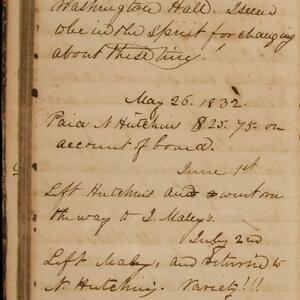 Washington Hall. I seem
to be in the spirit for changing
about these time,
May 26. 1832.
Paid N Hutchins $25.75 on
account of board.
June 1st
Left Hutchins and went on
the way to I. Maley's.
July 2nd
Left Maleys and returned to
N. Hutchins. Variety!!!